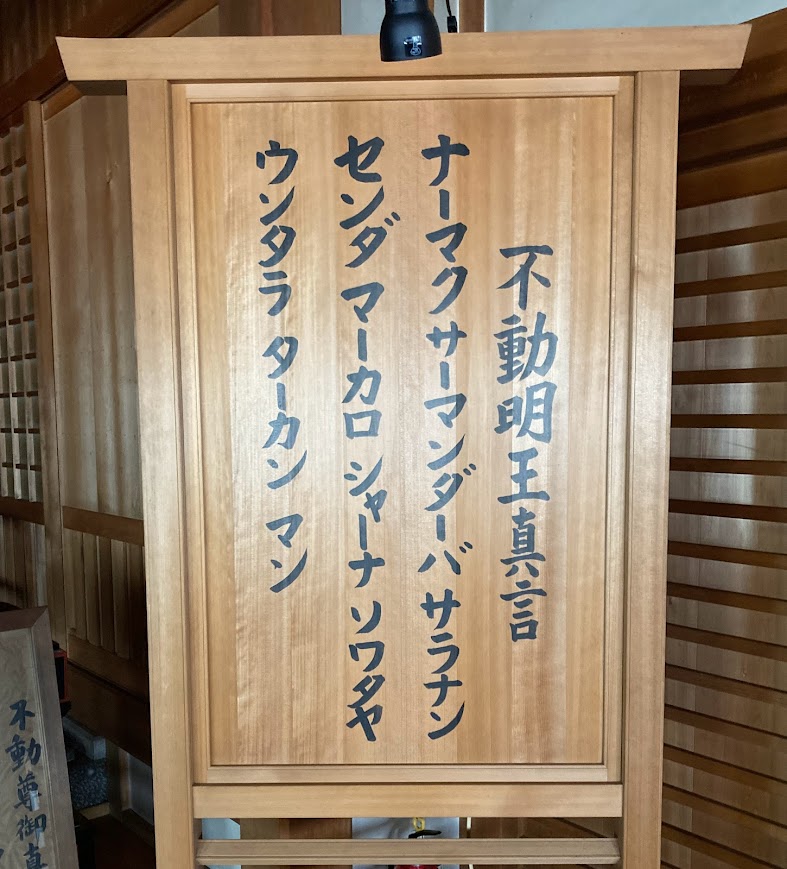 不動明王真言
ナーマク サーマンダーバ サラナン
センダ マーカロ シャーナ ソワタヤ
ウンタラ ターカン マン
不動尊御真